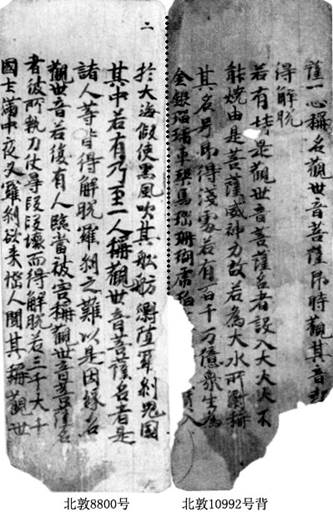 薩一心稱名觀世音菩薩即時觀其音
得解脫
若有持是觀世音菩薩名者設入大火火不
能燒由是菩薩威神力故若為大水所漂稱
其名号即得淺處若有百千万億衆生為
金銀瑠璃車𤦲馬瑙珊瑚虎珀
入
二
於大海假使黑風吹其舩舫漂墮羅剎鬼國
其中若有乃至一人稱觀世音菩薩名者是
諸人等皆得解脫羅剎之難以是因緣名
觀世音若復有人臨當被害稱觀世音菩薩名
者彼所執刀仗尋段段壞而得解脫若三千大千
國土滿中夜叉羅剎欲來惱人聞其稱觀世
北敦8800号
北敦10992号背